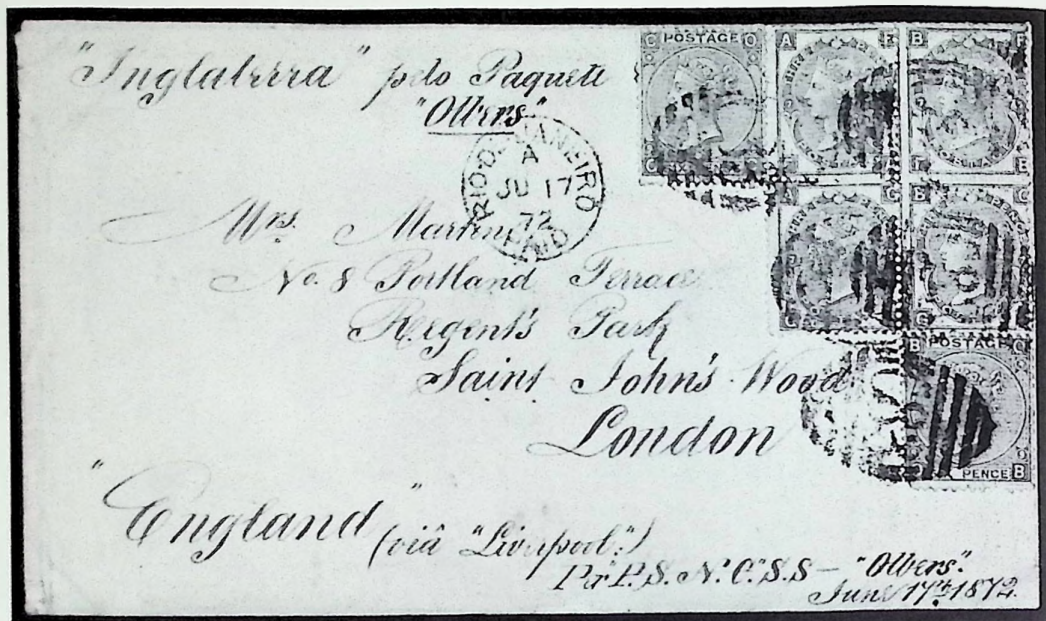 "Inglaterra" pelo Paquete
"Olbers"
RIO DE JANEIRO
A
JU 17
72
PAID
Mrs. Martin
No. 8 Portland Terrace
Regent's Park
Saint John's Wood
London
"England" (viâ "Liverpool".)
Per P. S. N. C.' S.S — "Olbers".
June 17th 1872.
C POSTAGE O
A E
B F
A G
B G
B POSTAGE C
PENCE B